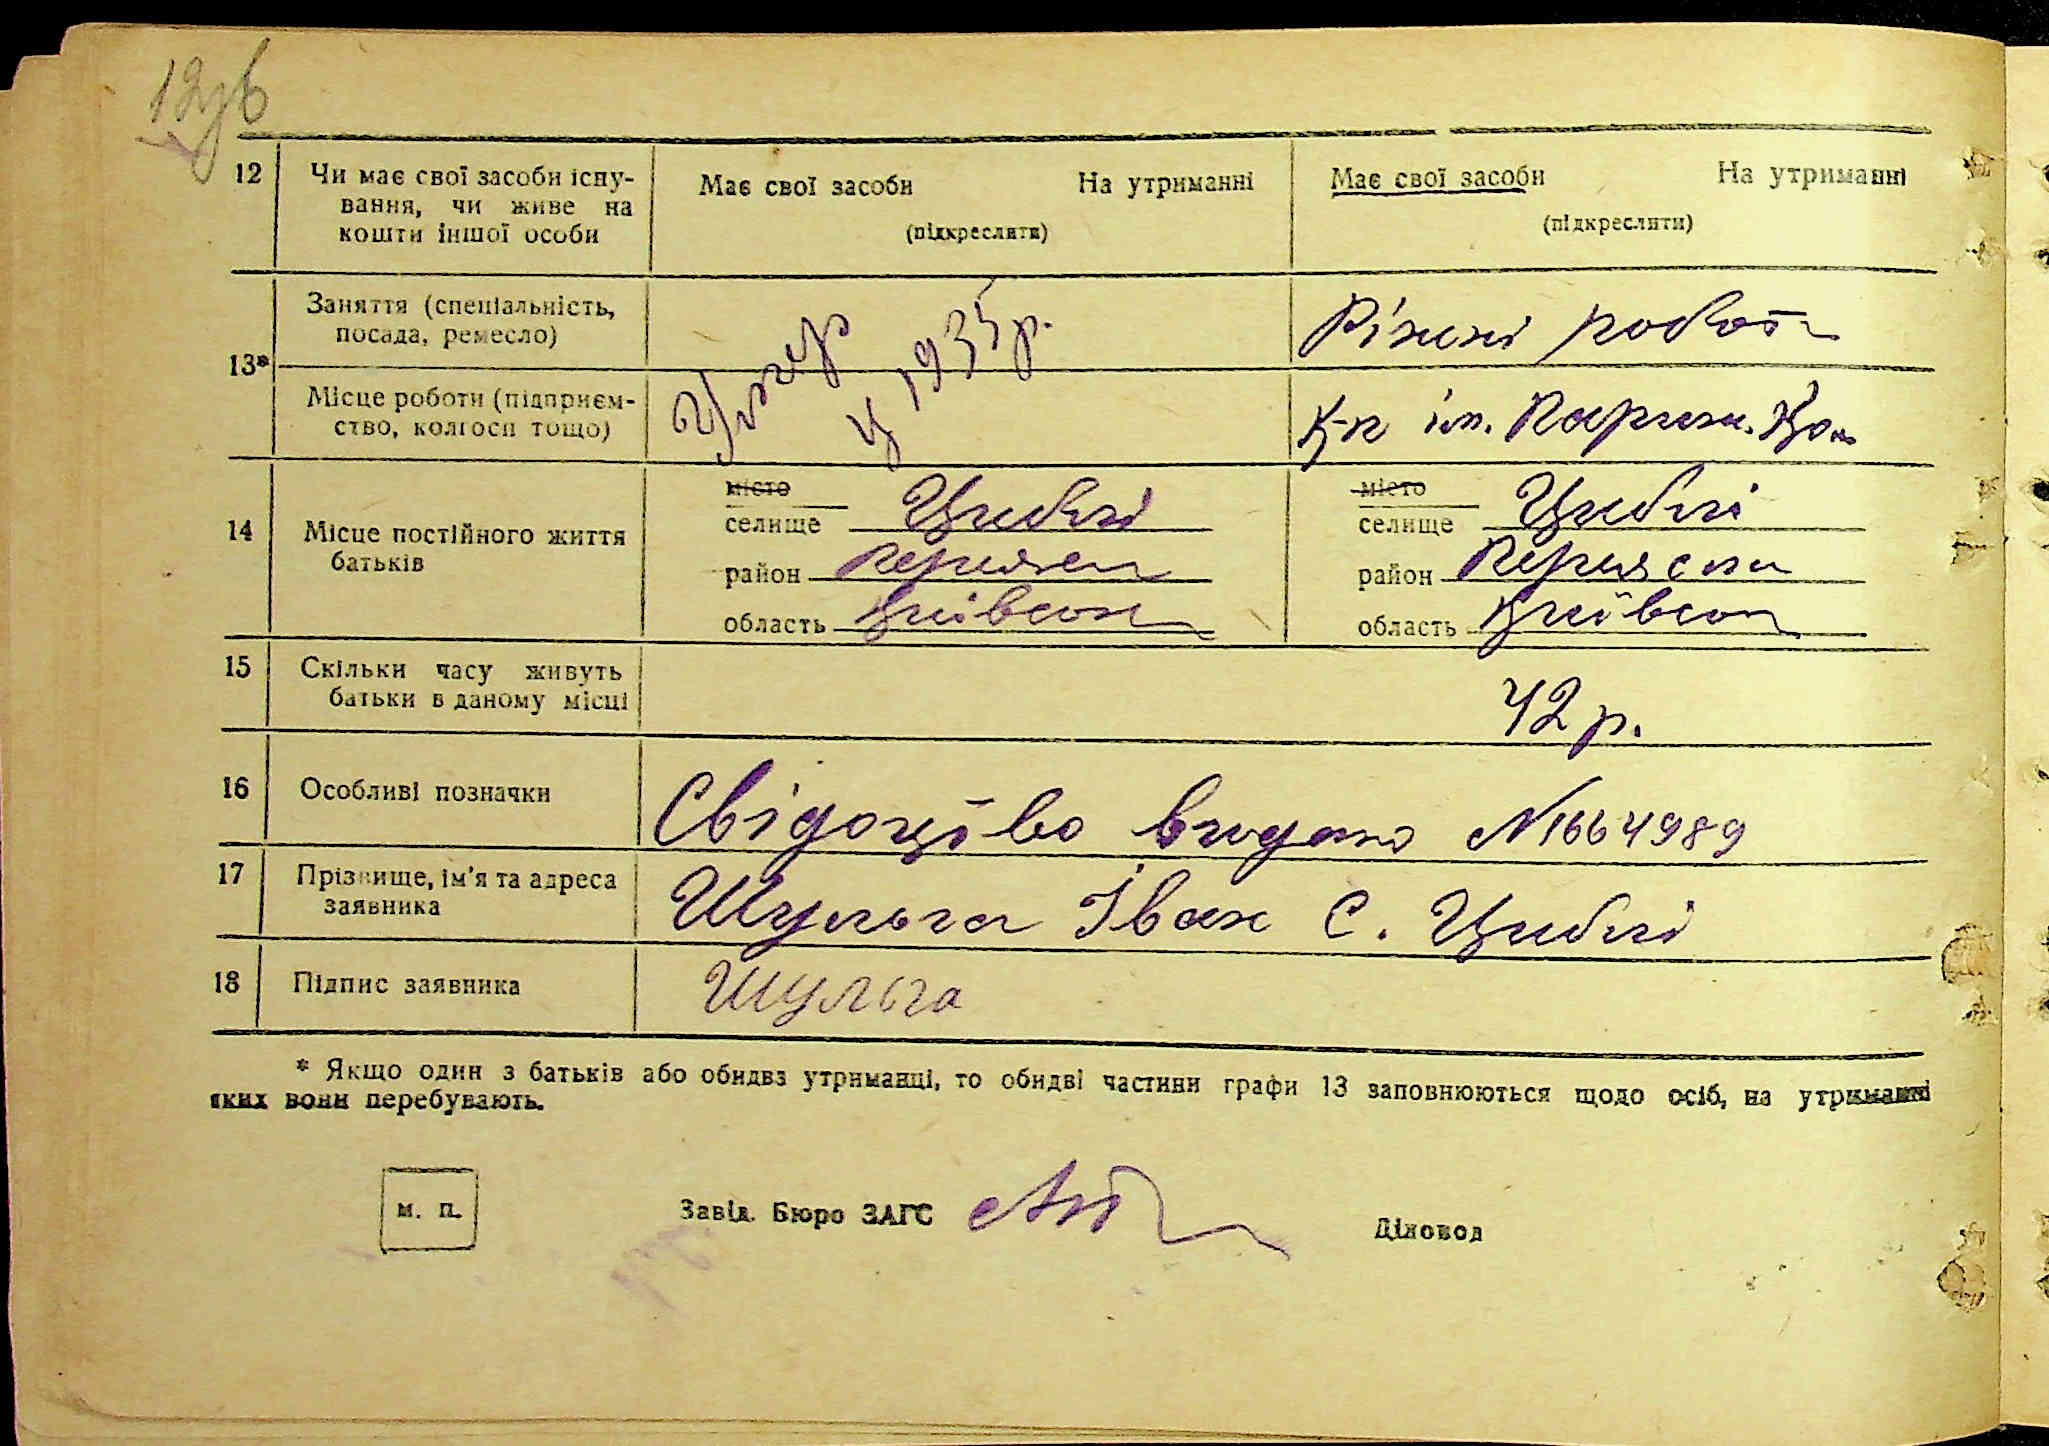 12зв
12 Чи має свої засоби існу- Має свої засоби На утриманні Має свої засоби На утриманні
вання, чи живе на
кошти іншої особи (підкреслити) (підкреслити)
13* Заняття (спеціальність, Різні робот
посада, ремесло)
Помер у 1935 р.
Місце роботи (підприєм- К-п ім. Париж. Ком
ство, колгосп тощо)
14 Місце постійного життя
батьків
місто місто
селище Циблі селище Циблі
район Переясл район Переяслав
область Київська область Київськ
15 Скільки часу живуть
батьки в даному місці 42 р.
16 Особливі позначки Свідоцтво видано №1664989
17 Прізвище, ім'я та адреса Шульга Іван С. Циблі
заявника
18 Підпис заявника Шульга
* Якщо один з батьків або обидва утриманці, то обидві частини графи 13 заповнюються щодо осіб, на утриманні
яких вони перебувають.
м. п. Завід. Бюро ЗАГС Діловод